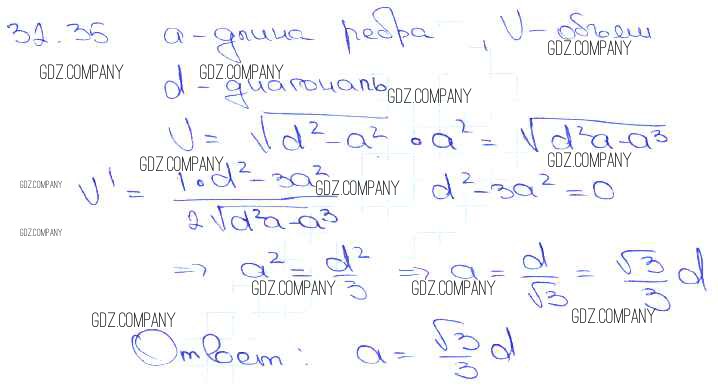 32.35 a - длина ребра , V - объем
GDZ.COMPANY GDZ.COMPANY GDZ.COMPANY
d - диагональ GDZ.COMPANY
V = √(d² - a²) · a² = √(d²a - a³)
GDZ.COMPANY GDZ.COMPANY
GDZ.COMPANY V' = (1·d² - 3a²)/(2√(d²a - a³)) GDZ.COMPANY d² - 3a² = 0
GDZ.COMPANY
=> a² = d²/3 => a = d/√3 = √3/3 d
GDZ.COMPANY GDZ.COMPANY
GDZ.COMPANY GDZ.COMPANY
Ответ: a = √3/3 d